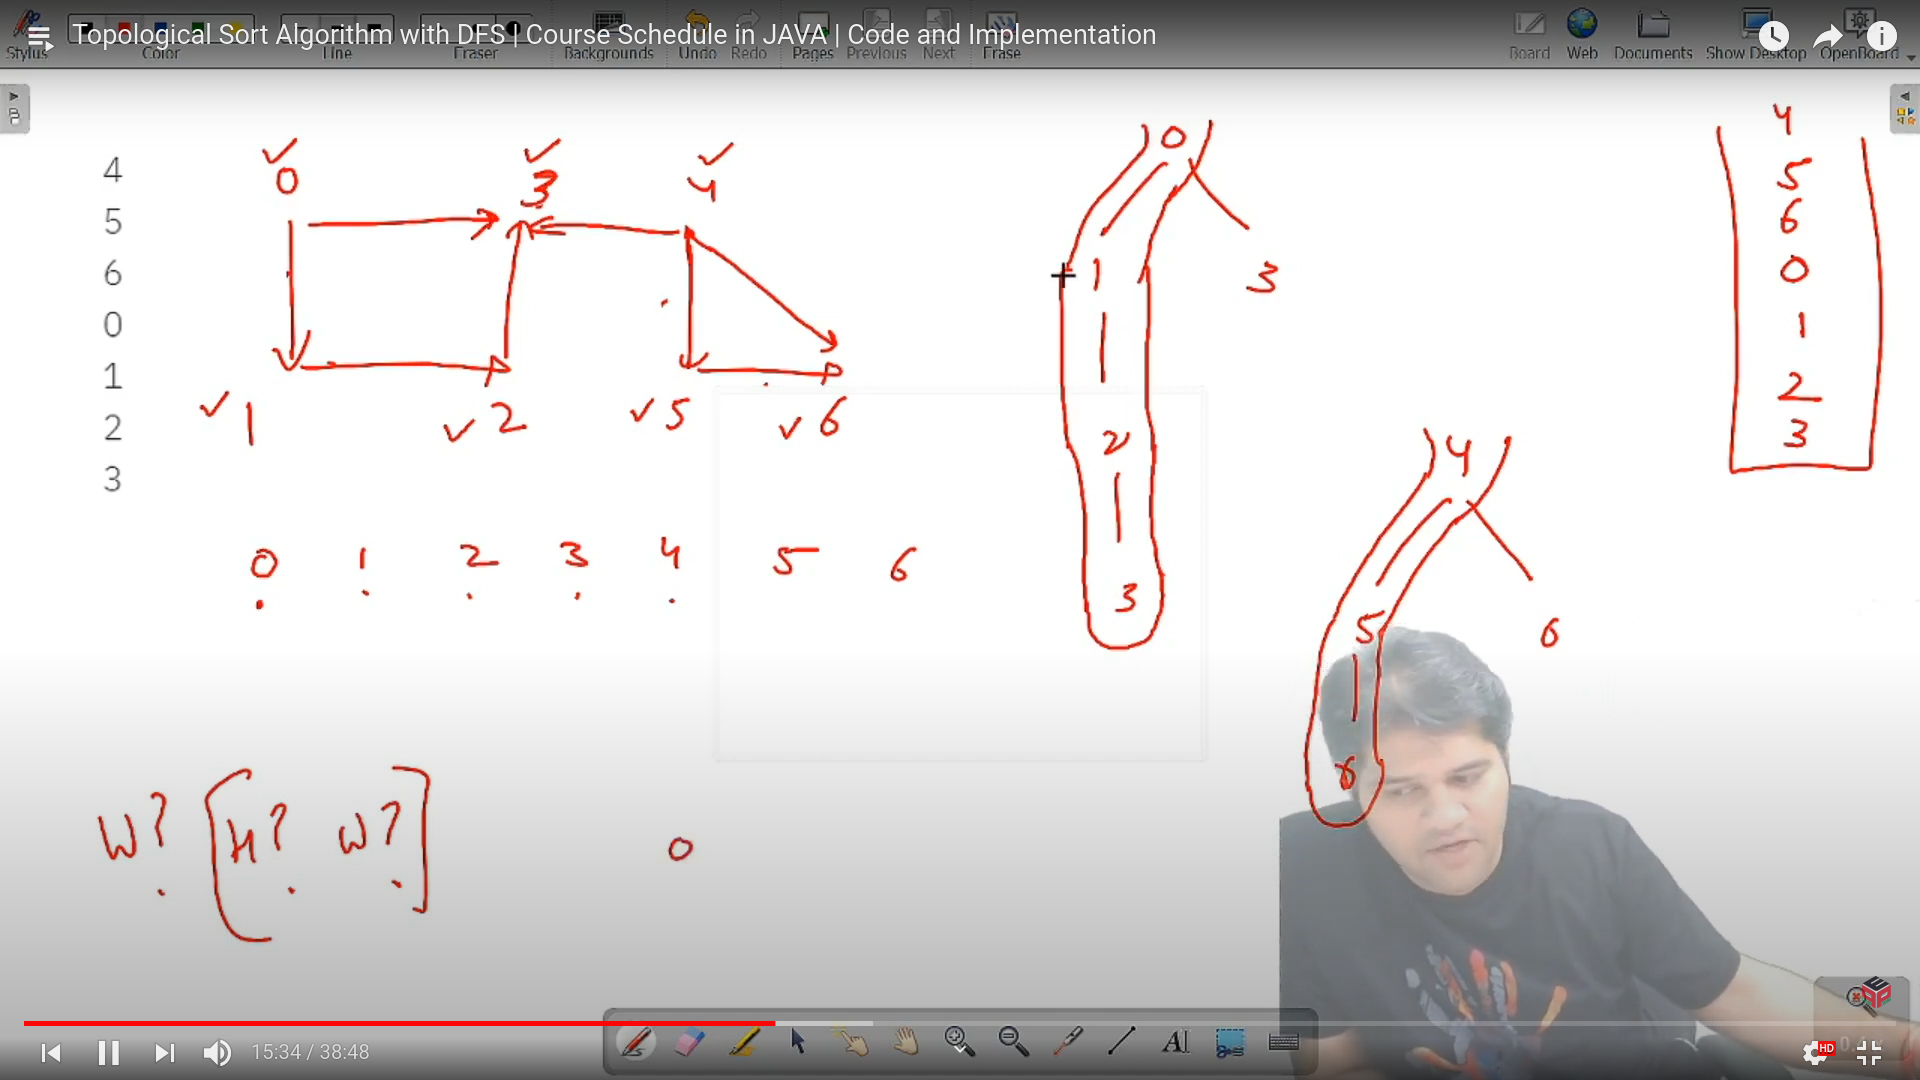 Topological Sort Algorithm with DFS | Course Schedule in JAVA | Code and Implementation
Stylus Color Line Eraser Backgrounds Undo Redo Pages Previous Next Erase Board Web Documents Show Desktop OpenBoard
4
5
6
0
1
2
3
0 3 4
1 2 5 6
0 1 2 3 4 5 6
W? [H? W?]
0
0
1 3
2
3
4
5 6
6
4
5
6
0
1
2
3
15:34 / 38:48
AI
HD